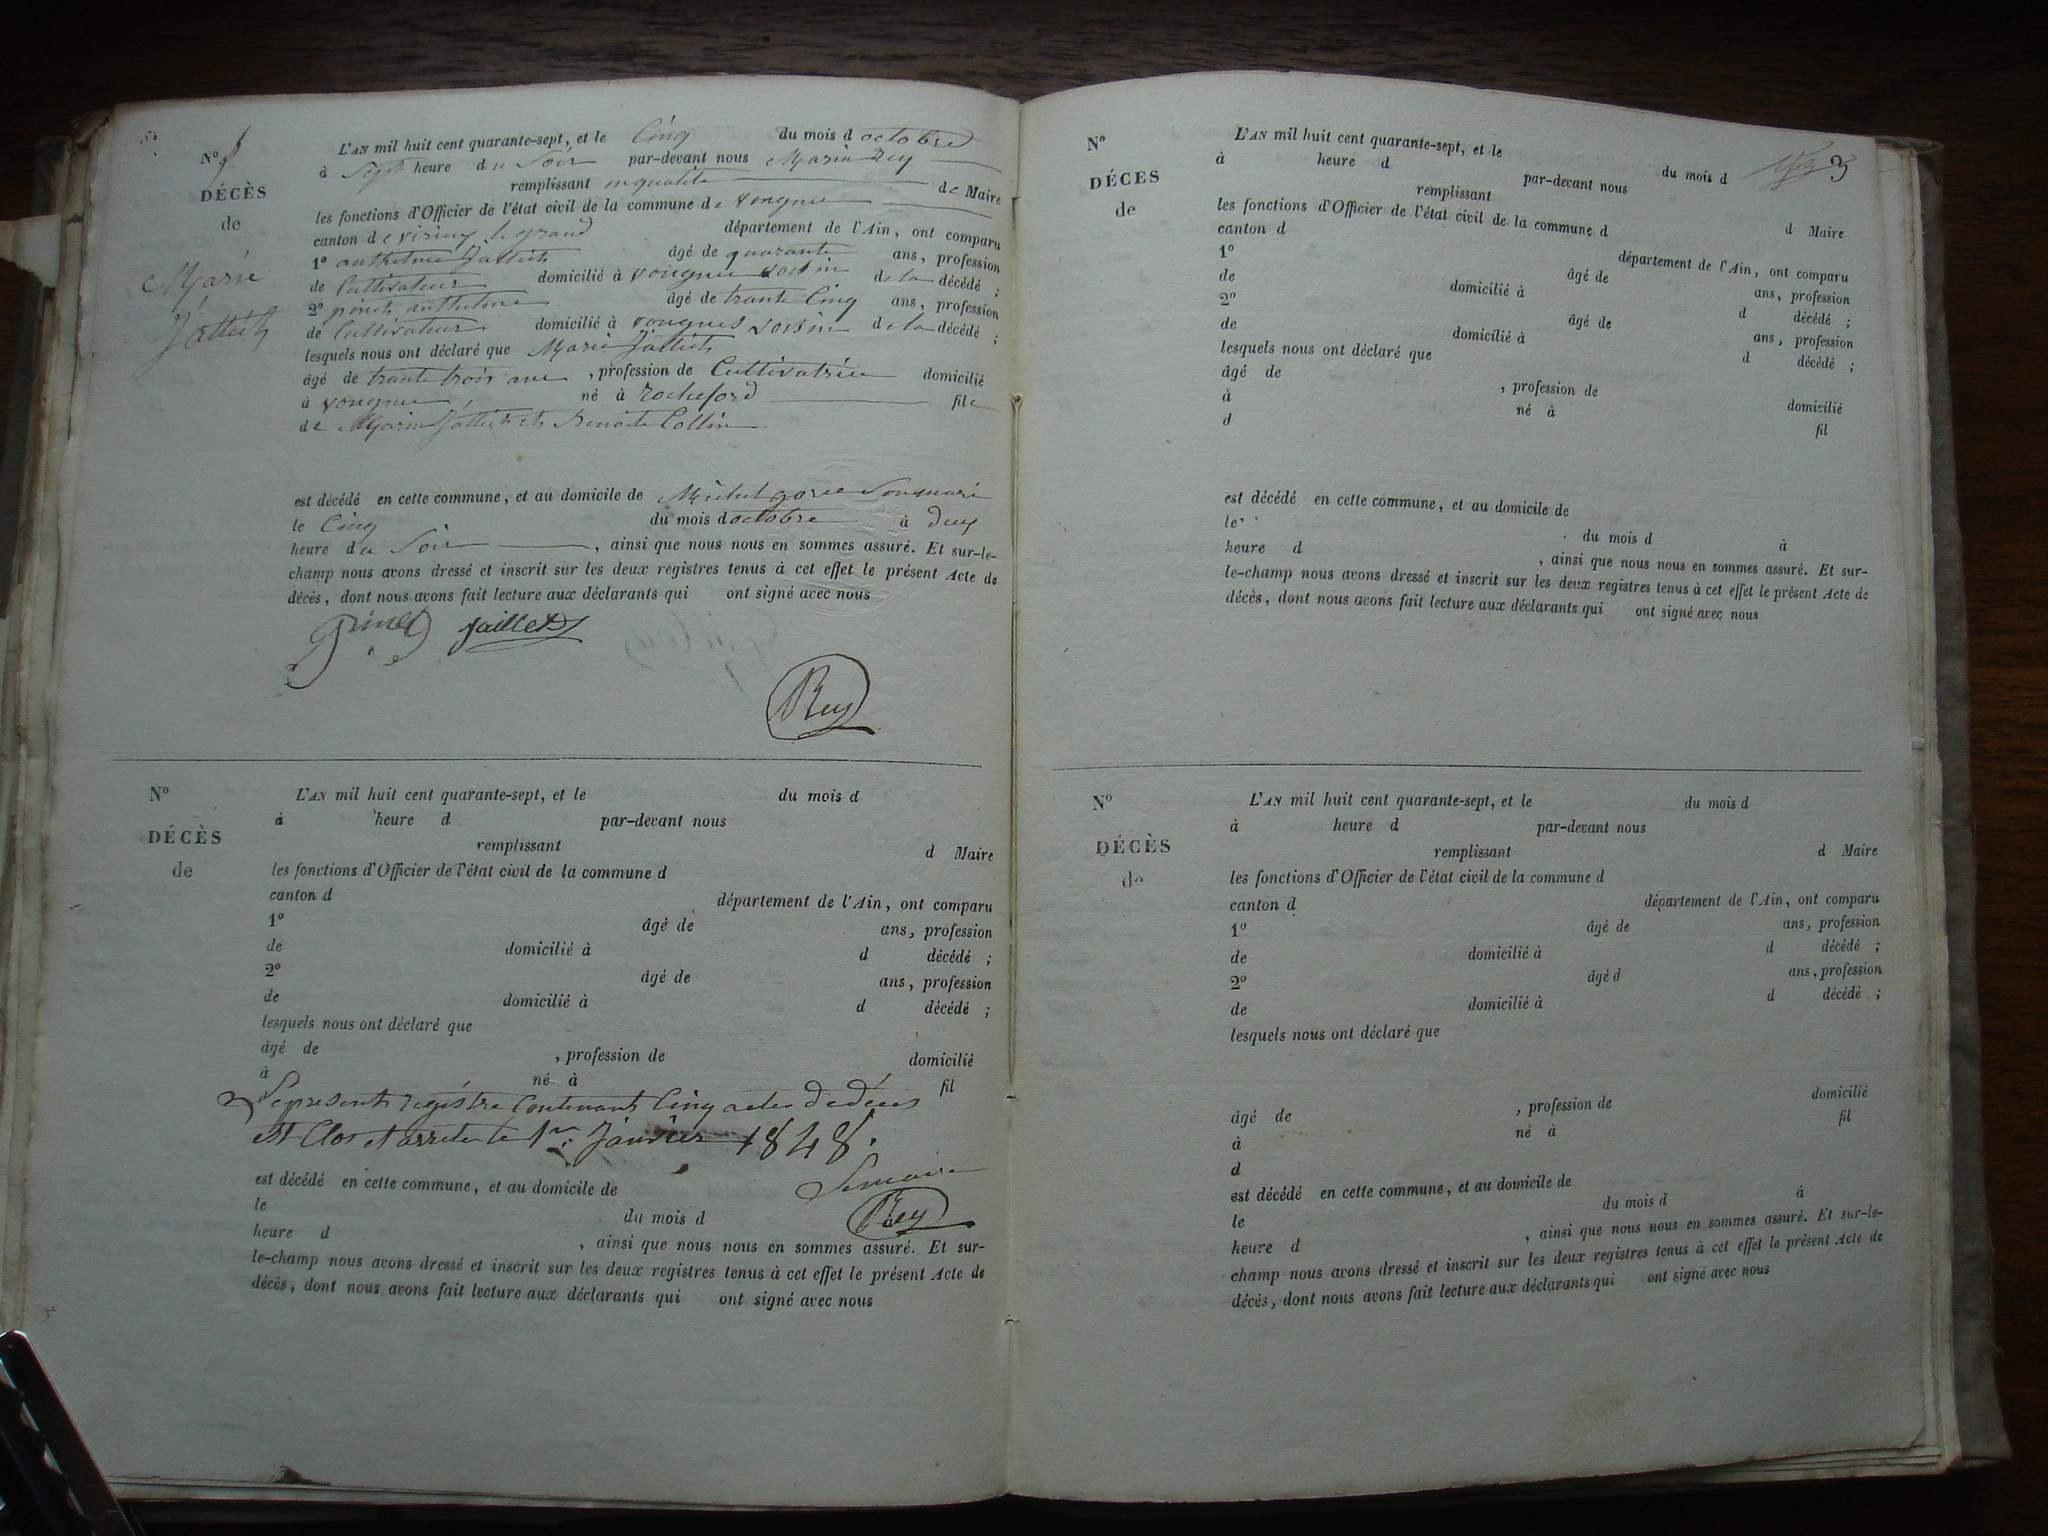 N° 5
DÉCÈS
de
Marie
Jalliet
L'AN mil huit cent quarante-sept, et le Cinq du mois d octobre
à Sept heure du Soir par-devant nous Marin Rey
remplissant enqualité de Maire
les fonctions d'Officier de l'état civil de la commune de vongne
canton de virieu legrand département de l'Ain, ont comparu
1° anthelme Jalliet âgé de quarante ans, profession
de Cultivateur domicilié à vongne voisin de la décédé ;
2° pinet anthelme âgé de trante Cinq ans, profession
de Cultivateur domicilié à vongnes voisin de la décédé ;
lesquels nous ont déclaré que Marie Jalliet
âgé de trante trois ans, profession de Cultivatrice domicilié
à vongne né à rocheford file
de Marin Jalliet et Benoite Collin
est décédé en cette commune, et au domicile de Michel Sonmari
le Cinq du mois doctobre à deux
heure du Soir, ainsi que nous nous en sommes assuré. Et sur-le-
champ nous avons dressé et inscrit sur les deux registres tenus à cet effet le présent Acte de
décès, dont nous avons fait lecture aux déclarants qui ont signé avec nous
pinet jaillet
Rey
N°
DÉCÈS
de
L'AN mil huit cent quarante-sept, et le du mois d
à heure d par-devant nous
remplissant d Maire
les fonctions d'Officier de l'état civil de la commune d
canton d département de l'Ain, ont comparu
1° âgé de ans, profession
de domicilié à d décédé ;
2° âgé de ans, profession
de domicilié à d décédé ;
lesquels nous ont déclaré que
âgé de , profession de domicilié
à né à fil
Le present régistre Contenant Cinq actes de déces
est Clos et arrete le 1er Janvier 1848.
Le maire
Rey
est décédé en cette commune, et au domicile de
le du mois d
heure d , ainsi que nous nous en sommes assuré. Et sur-
le-champ nous avons dressé et inscrit sur les deux registres tenus à cet effet le présent Acte de
décès, dont nous avons fait lecture aux déclarants qui ont signé avec nous
3
N°
DÉCES
de
L'AN mil huit cent quarante-sept, et le du mois d
à heure d par-devant nous
remplissant d Maire
les fonctions d'Officier de l'état civil de la commune d
canton d département de l'Ain, ont comparu
1° âgé de ans, profession
de domicilié à d décédé ;
2° âgé de ans, profession
de domicilié à d décédé ;
lesquels nous ont déclaré que
âgé de , profession de domicilié
à né à fil
d
est décédé en cette commune, et au domicile de
le du mois d à
heure d , ainsi que nous nous en sommes assuré. Et sur-
le-champ nous avons dressé et inscrit sur les deux registres tenus à cet effet le présent Acte de
décès, dont nous avons fait lecture aux déclarants qui ont signé avec nous
N°
DÉCÈS
de
L'AN mil huit cent quarante-sept, et le du mois d
à heure d par-devant nous
remplissant d Maire
les fonctions d'Officier de l'état civil de la commune d
canton d département de l'Ain, ont comparu
1° âgé de ans, profession
de domicilié à d décédé ;
2° âgé d ans, profession
de domicilié à d décédé ;
lesquels nous ont déclaré que
âgé de , profession de domicilié
à né à fil
d
est décédé en cette commune, et au domicile de
le du mois d à
heure d , ainsi que nous nous en sommes assuré. Et sur-le-
champ nous avons dressé et inscrit sur les deux registres tenus à cet effet le présent Acte de
décès, dont nous avons fait lecture aux déclarants qui ont signé avec nous